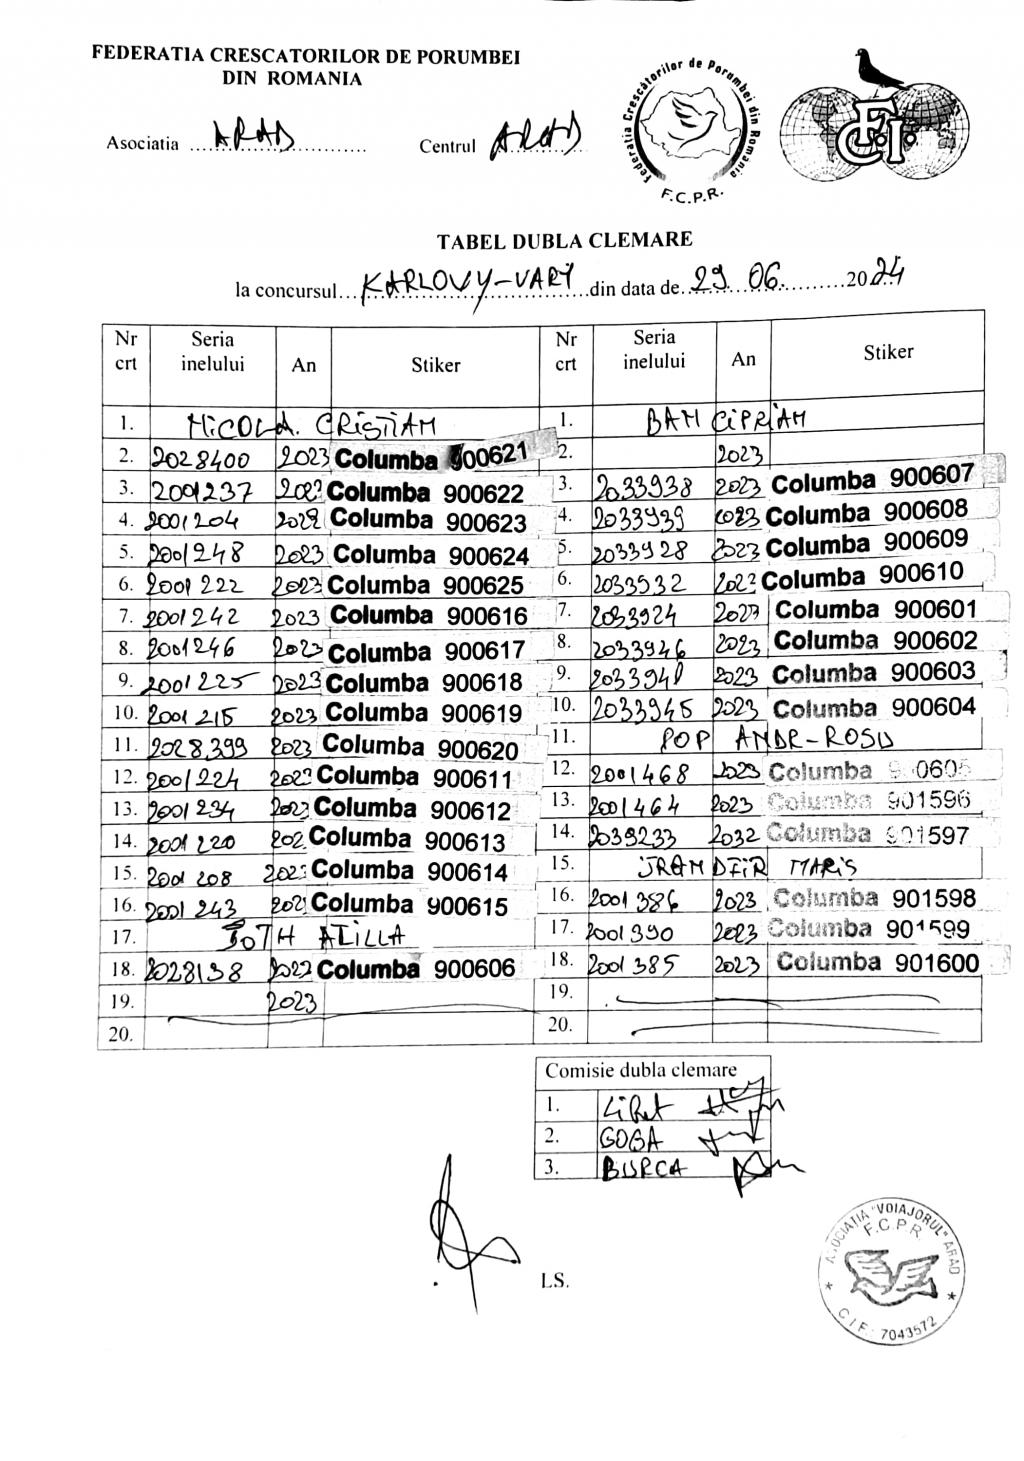 FEDERATIA CRESCATORILOR DE PORUMBEI
DIN ROMANIA
Federatia Crescătorilor de Porumbei din Romania
F.C.P.R.
FCI
Asociatia ARAD Centrul ARAD
TABEL DUBLA CLEMARE
la concursul KARLOVY-VARY din data de 29 06. 2024
Nr crt Seria inelului An Stiker Nr crt Seria inelului An Stiker
1. NICOLA. CRISTIAN 1. BAN CIPRIAN
2. 2028400 2023 Columba 900621 2. 2023
3. 2001237 2023 Columba 900622 3. 2033938 2023 Columba 900607
4. 2001204 2022 Columba 900623 4. 2033939 2023 Columba 900608
5. 2001248 2023 Columba 900624 5. 2033928 2023 Columba 900609
6. 2001222 2023 Columba 900625 6. 2033932 2023 Columba 900610
7. 2001242 2023 Columba 900616 7. 2033924 2023 Columba 900601
8. 2001246 2023 Columba 900617 8. 2033946 2023 Columba 900602
9. 2001225 2023 Columba 900618 9. 2033948 2023 Columba 900603
10. 2001215 2023 Columba 900619 10. 2033945 2023 Columba 900604
11. 2028399 2023 Columba 900620 11. POP ANDR-ROSU
12. 2001224 2023 Columba 900611 12. 2001468 2023 Columba 900605
13. 2001234 2023 Columba 900612 13. 2001464 2023 Columba 901596
14. 2001220 202 Columba 900613 14. 2039233 2032 Columba 901597
15. 2001208 2023 Columba 900614 15. TRANDFIR MARIS
16. 2001243 202 Columba 900615 16. 2001386 2023 Columba 901598
17. TOTH ATILLA 17. 2001390 2023 Columba 901599
18. 2028138 2022 Columba 900606 18. 2001385 2023 Columba 901600
19. 2023 19.
20. 20.
Comisie dubla clemare
1.
2. GOGA
3. BURCA
LS.
ASOCIATIA "VOIAJORUL" ARAD
F.C.P.R.
C.I.F.: 7043572